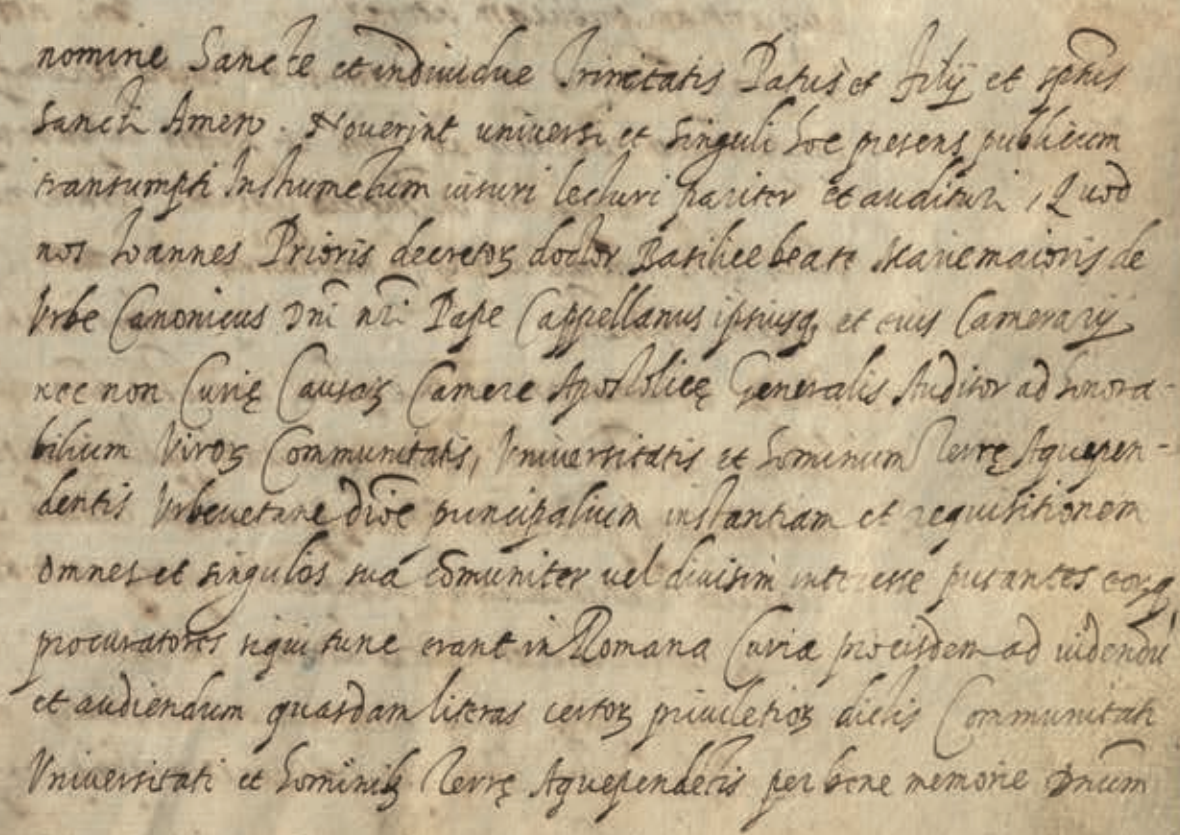 nomine Sancte et indiuidue Trinitatis Patris et filij et sp̄us
Sancti Amen. Nouerint universi et singuli hoc presens publicum
transumpti Instrumētum uisuri lecturi pariter et audituri, Quod
nos Ioannes Prioris decretoꝝ doctor Basilice beate Marie maioris de
Vrbe Canonicus Dn̄i nr̄i Pape Cappellanus ipsiusqꝫ et eius Camerarij
nec non Curię Causaꝝ Camere Apostolicę Generalis Auditor ad honora-
bilium Viroꝝ Communitatis, Vniuersitatis et hominum Terrę Aquepen-
dentis Vrbeuetane dioc̄ principalium instantiam et requisitionem
omnes et singulos sua cōmuniter uel diuisim interesse putantes eorqꝫ
procuratores siqui tunc erant in Romana Curia pro eisdem ad uidendū
et audiendum quasdam literas certoꝝ priuilegioꝝ dictis Communitati
Vniuersitati et hominibꝫ Terrę Aquependētis per bene memorie Dnūm